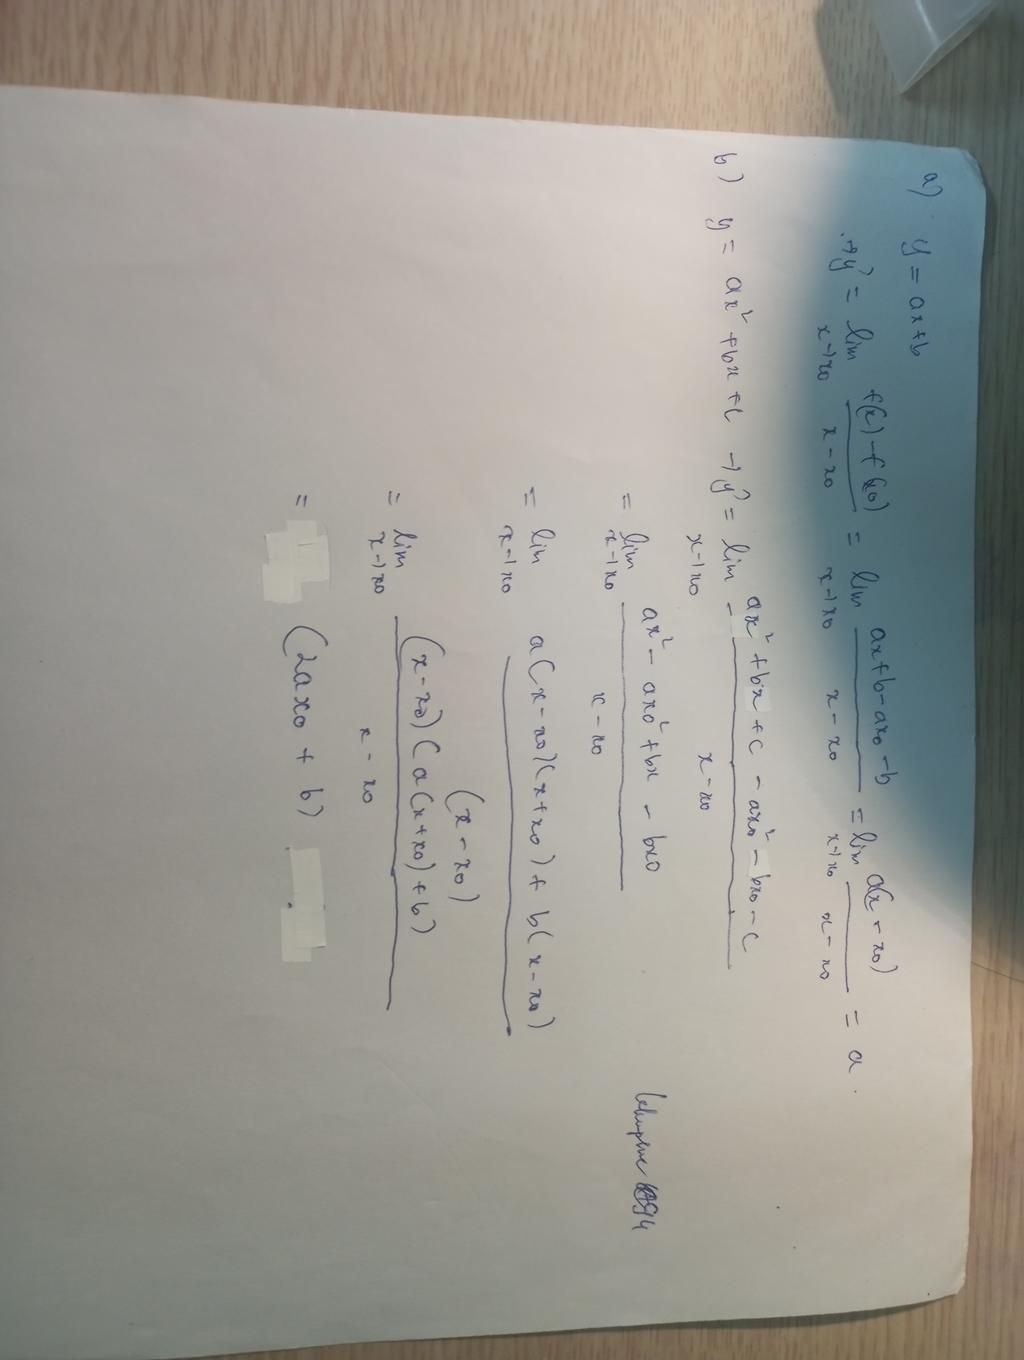 a) y = ax+b
→ y' = lim x→x0 f(x) - f(x0) / x - x0 = lim x→x0 ax+b-ax0-b / x - x0 = lim x→x0 a(x - x0) / x - x0 = a.
b) y = ax² + bx + c → y' = lim x→x0 ax² + bx + c - ax0² - bx0 - c / x - x0
= lim x→x0 ax² - ax0² + bx - bx0 / x - x0
= lim x→x0 a(x - x0)(x + x0) + b(x - x0) / (x - x0)
= lim x→x0 (x - x0)(a(x + x0) + b) / x - x0
= (2ax0 + b)